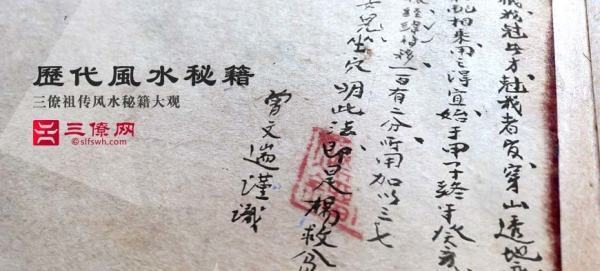 歷代風水秘籍
三僚祖传风水秘籍大观
三僚网
©slfswh.com
尅我者 穿山透地
相乗用之得宜始于甲子終于癸亥
移一百有二分所用加以三七
坐穴明此法即是楊救
曾文遄謹識